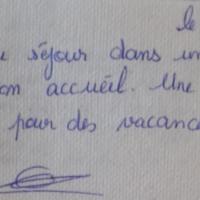 le
séjour dans un
accueil. Une
pour des vacance